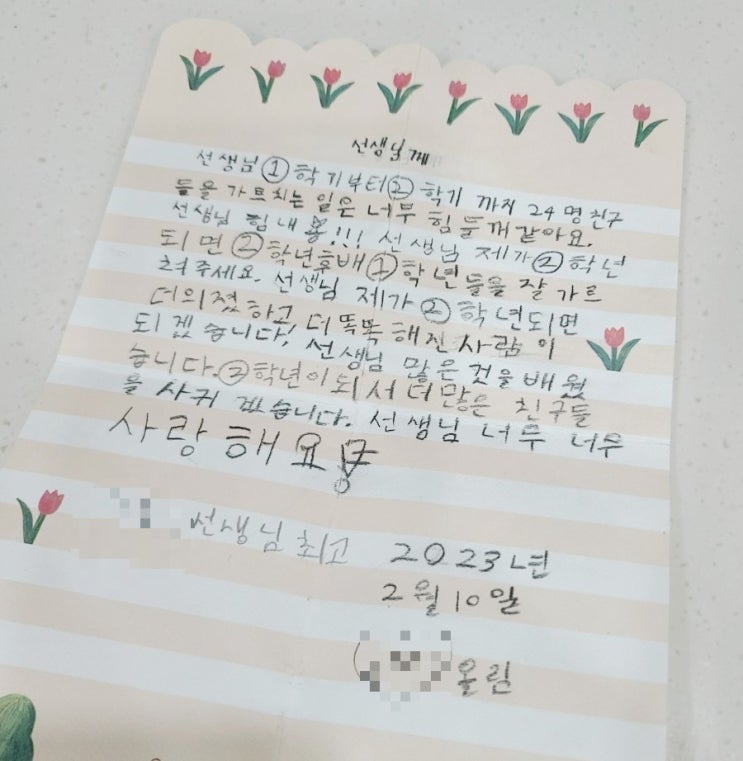 선생님께
선생님 ① 학기부터 ② 학기 까지 24명 친구
들을 가르치는 일은 너무 힘들꺼 같아요.
선생님 힘내용!!! 선생님 제가 ② 학년
되면 ② 학년후배 ① 학년들을 잘 가르
쳐주세요. 선생님 제가 ② 학년되면
더의젔하고 더똑똑해진사람이
되겠습니다! 선생님 많은것을배웠
습니다. ② 학년이되서더많은 친구들
을 사귀겠습니다. 선생님 너무 너무
사랑해요!
선생님최고
2023년
2월 10일
올림